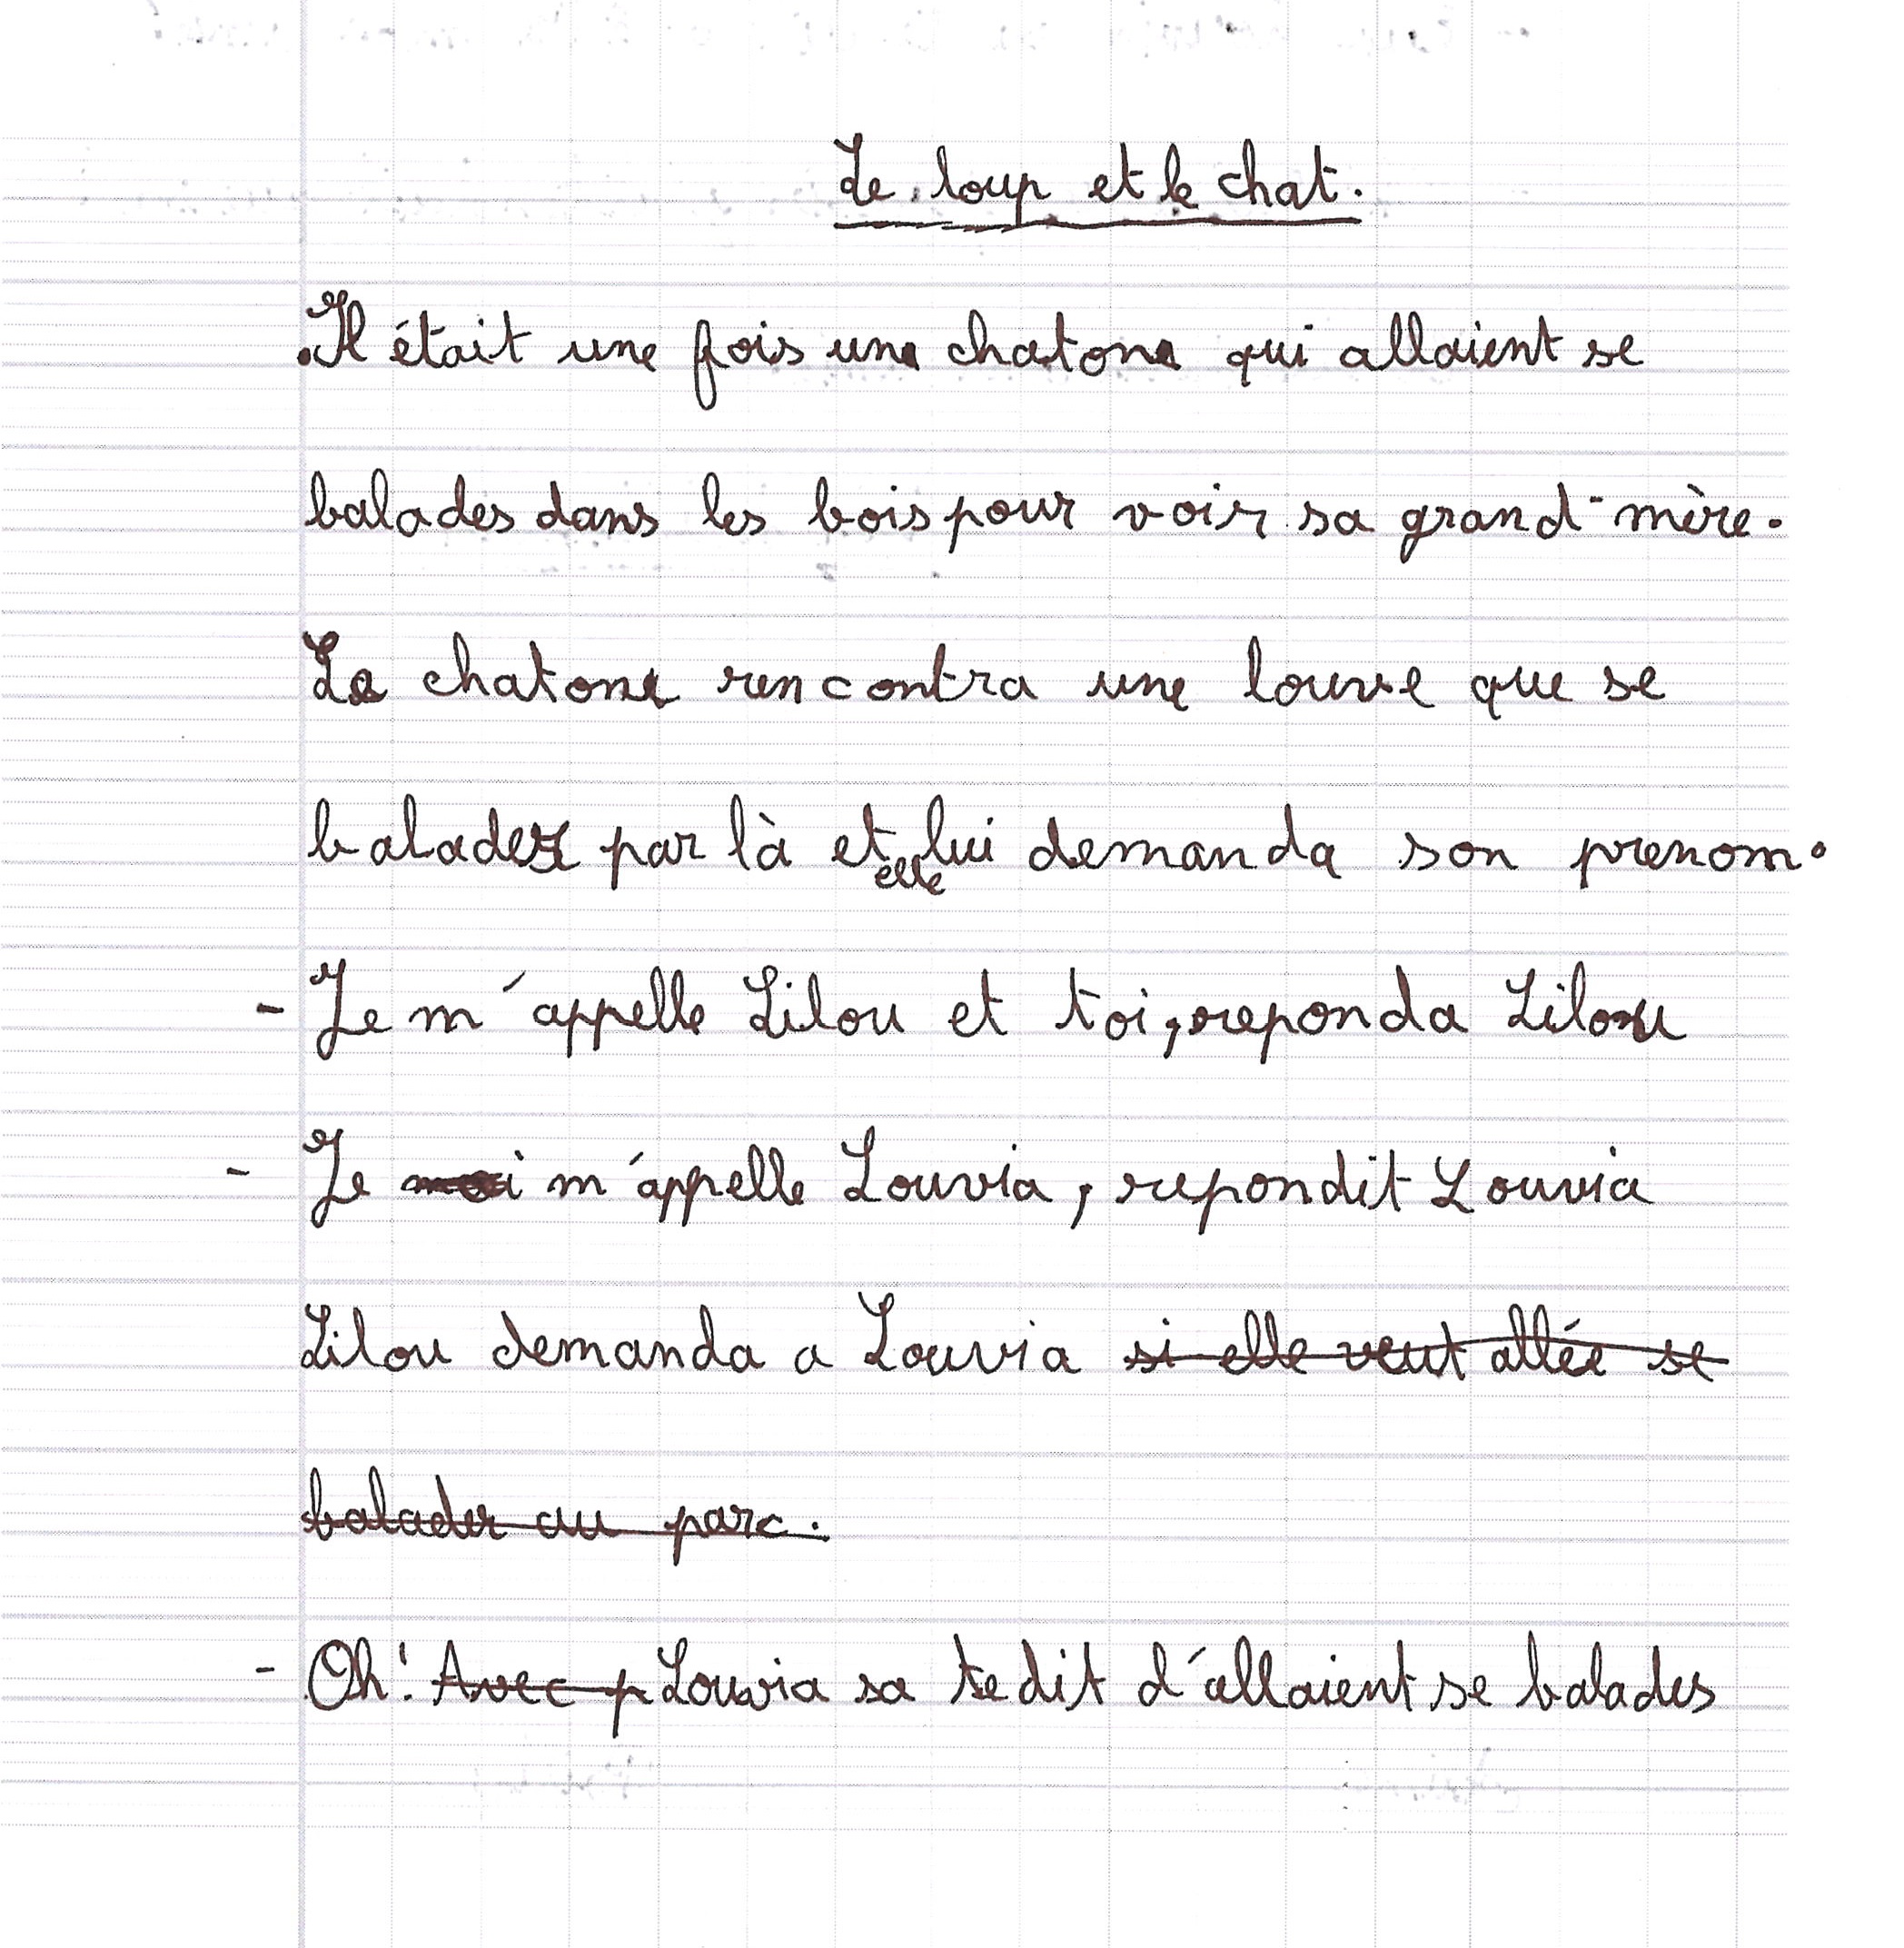 Le loup et le chat.
Il était une fois une chatone qui allaient se
balades dans les bois pour voir sa grand-mère.
La chatone rencontra une louve que se
balader par là et elle lui demanda son prenom.
- Je m'appelle Lilou et toi, reponda Lilou
- Je moi m'appelle Louvia, repondit Louvia
Lilou demanda a Louvia si elle veut allée se
balader au parc.
- Oh! Avec p Louvia sa te dit d'allaient se balades